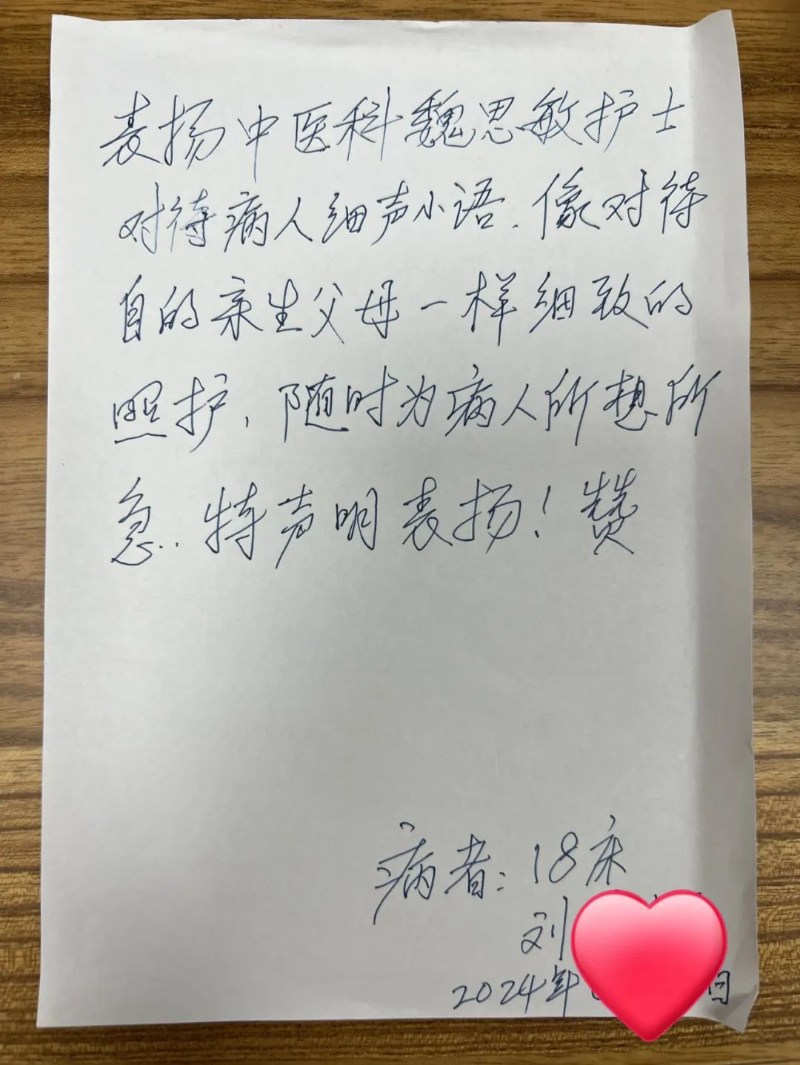 表扬中医科魏思敏护士
对待病人细声小语.像对待
自的亲生父母一样细致的
照护,随时为病人所想所
急..特声明表扬!赞
病者:18床
刘
2024年 日